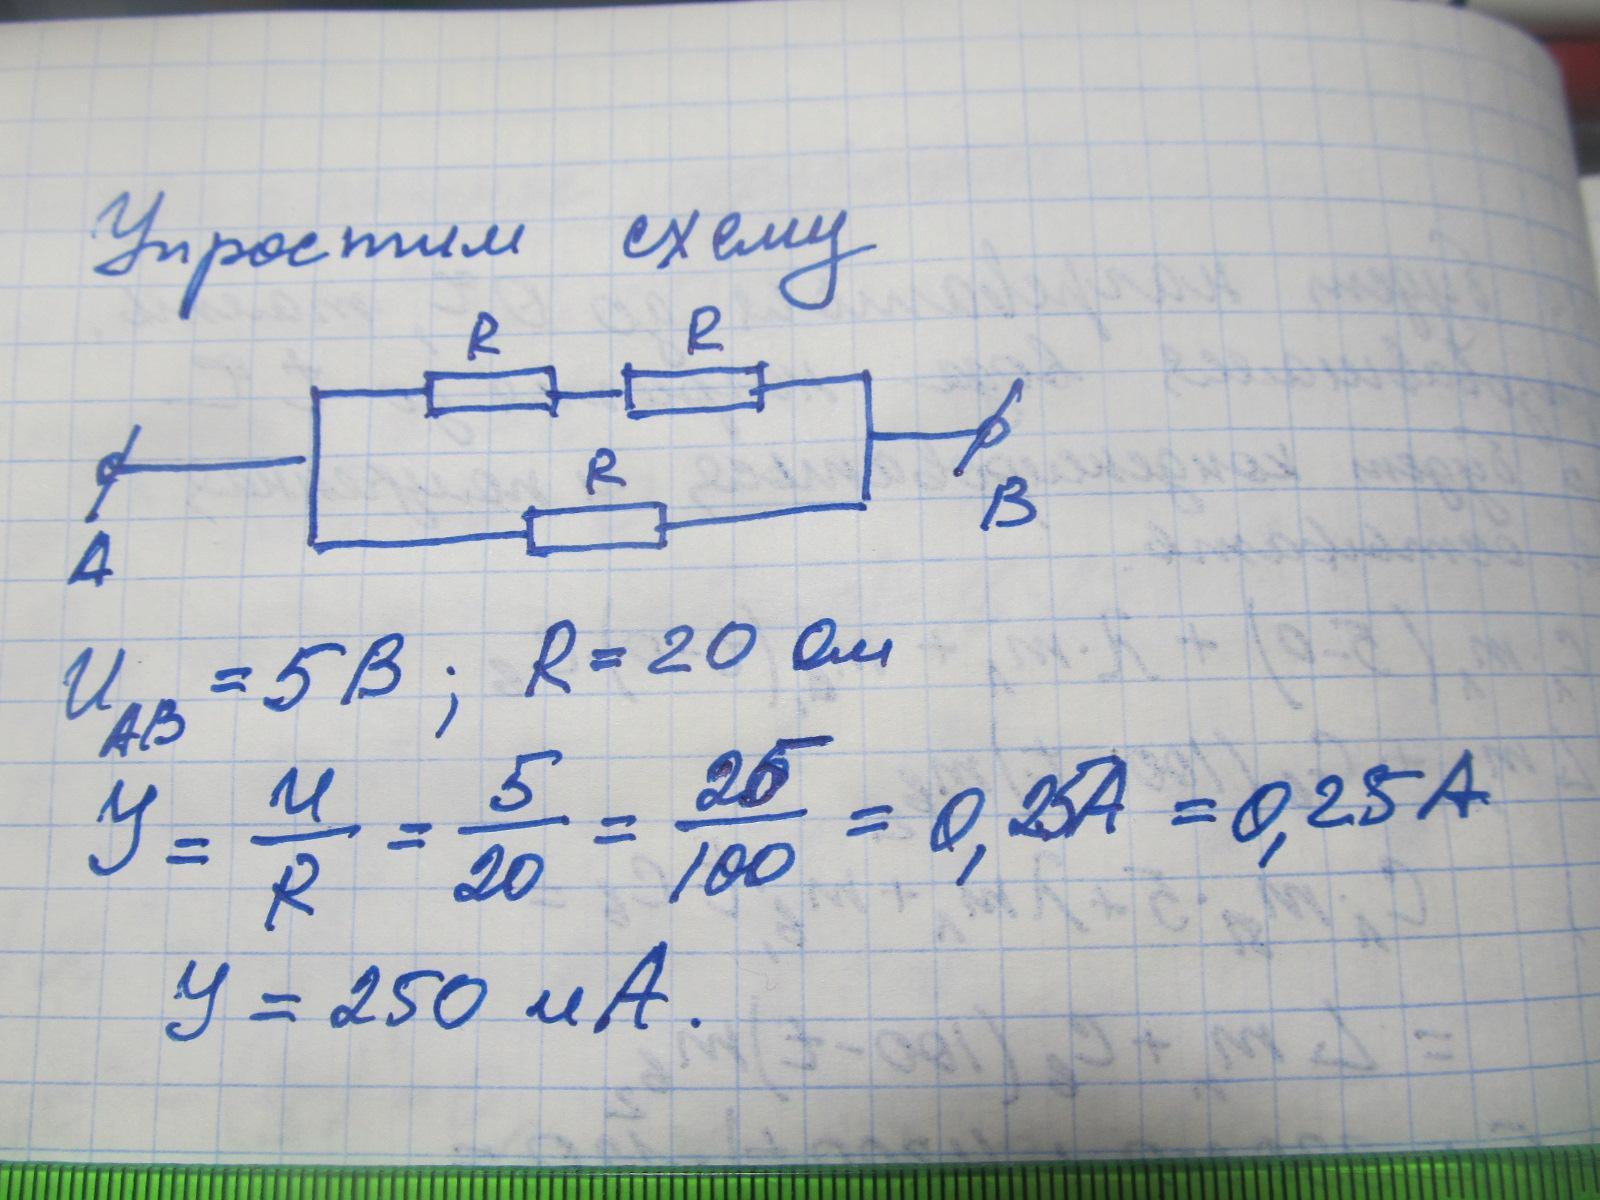 Упростим схему
R R
R
A B
U_AB = 5 В ; R = 20 Ом
У = U/R = 5/20 = 25/100 = 0,25А = 0,25 А
У = 250 мА.